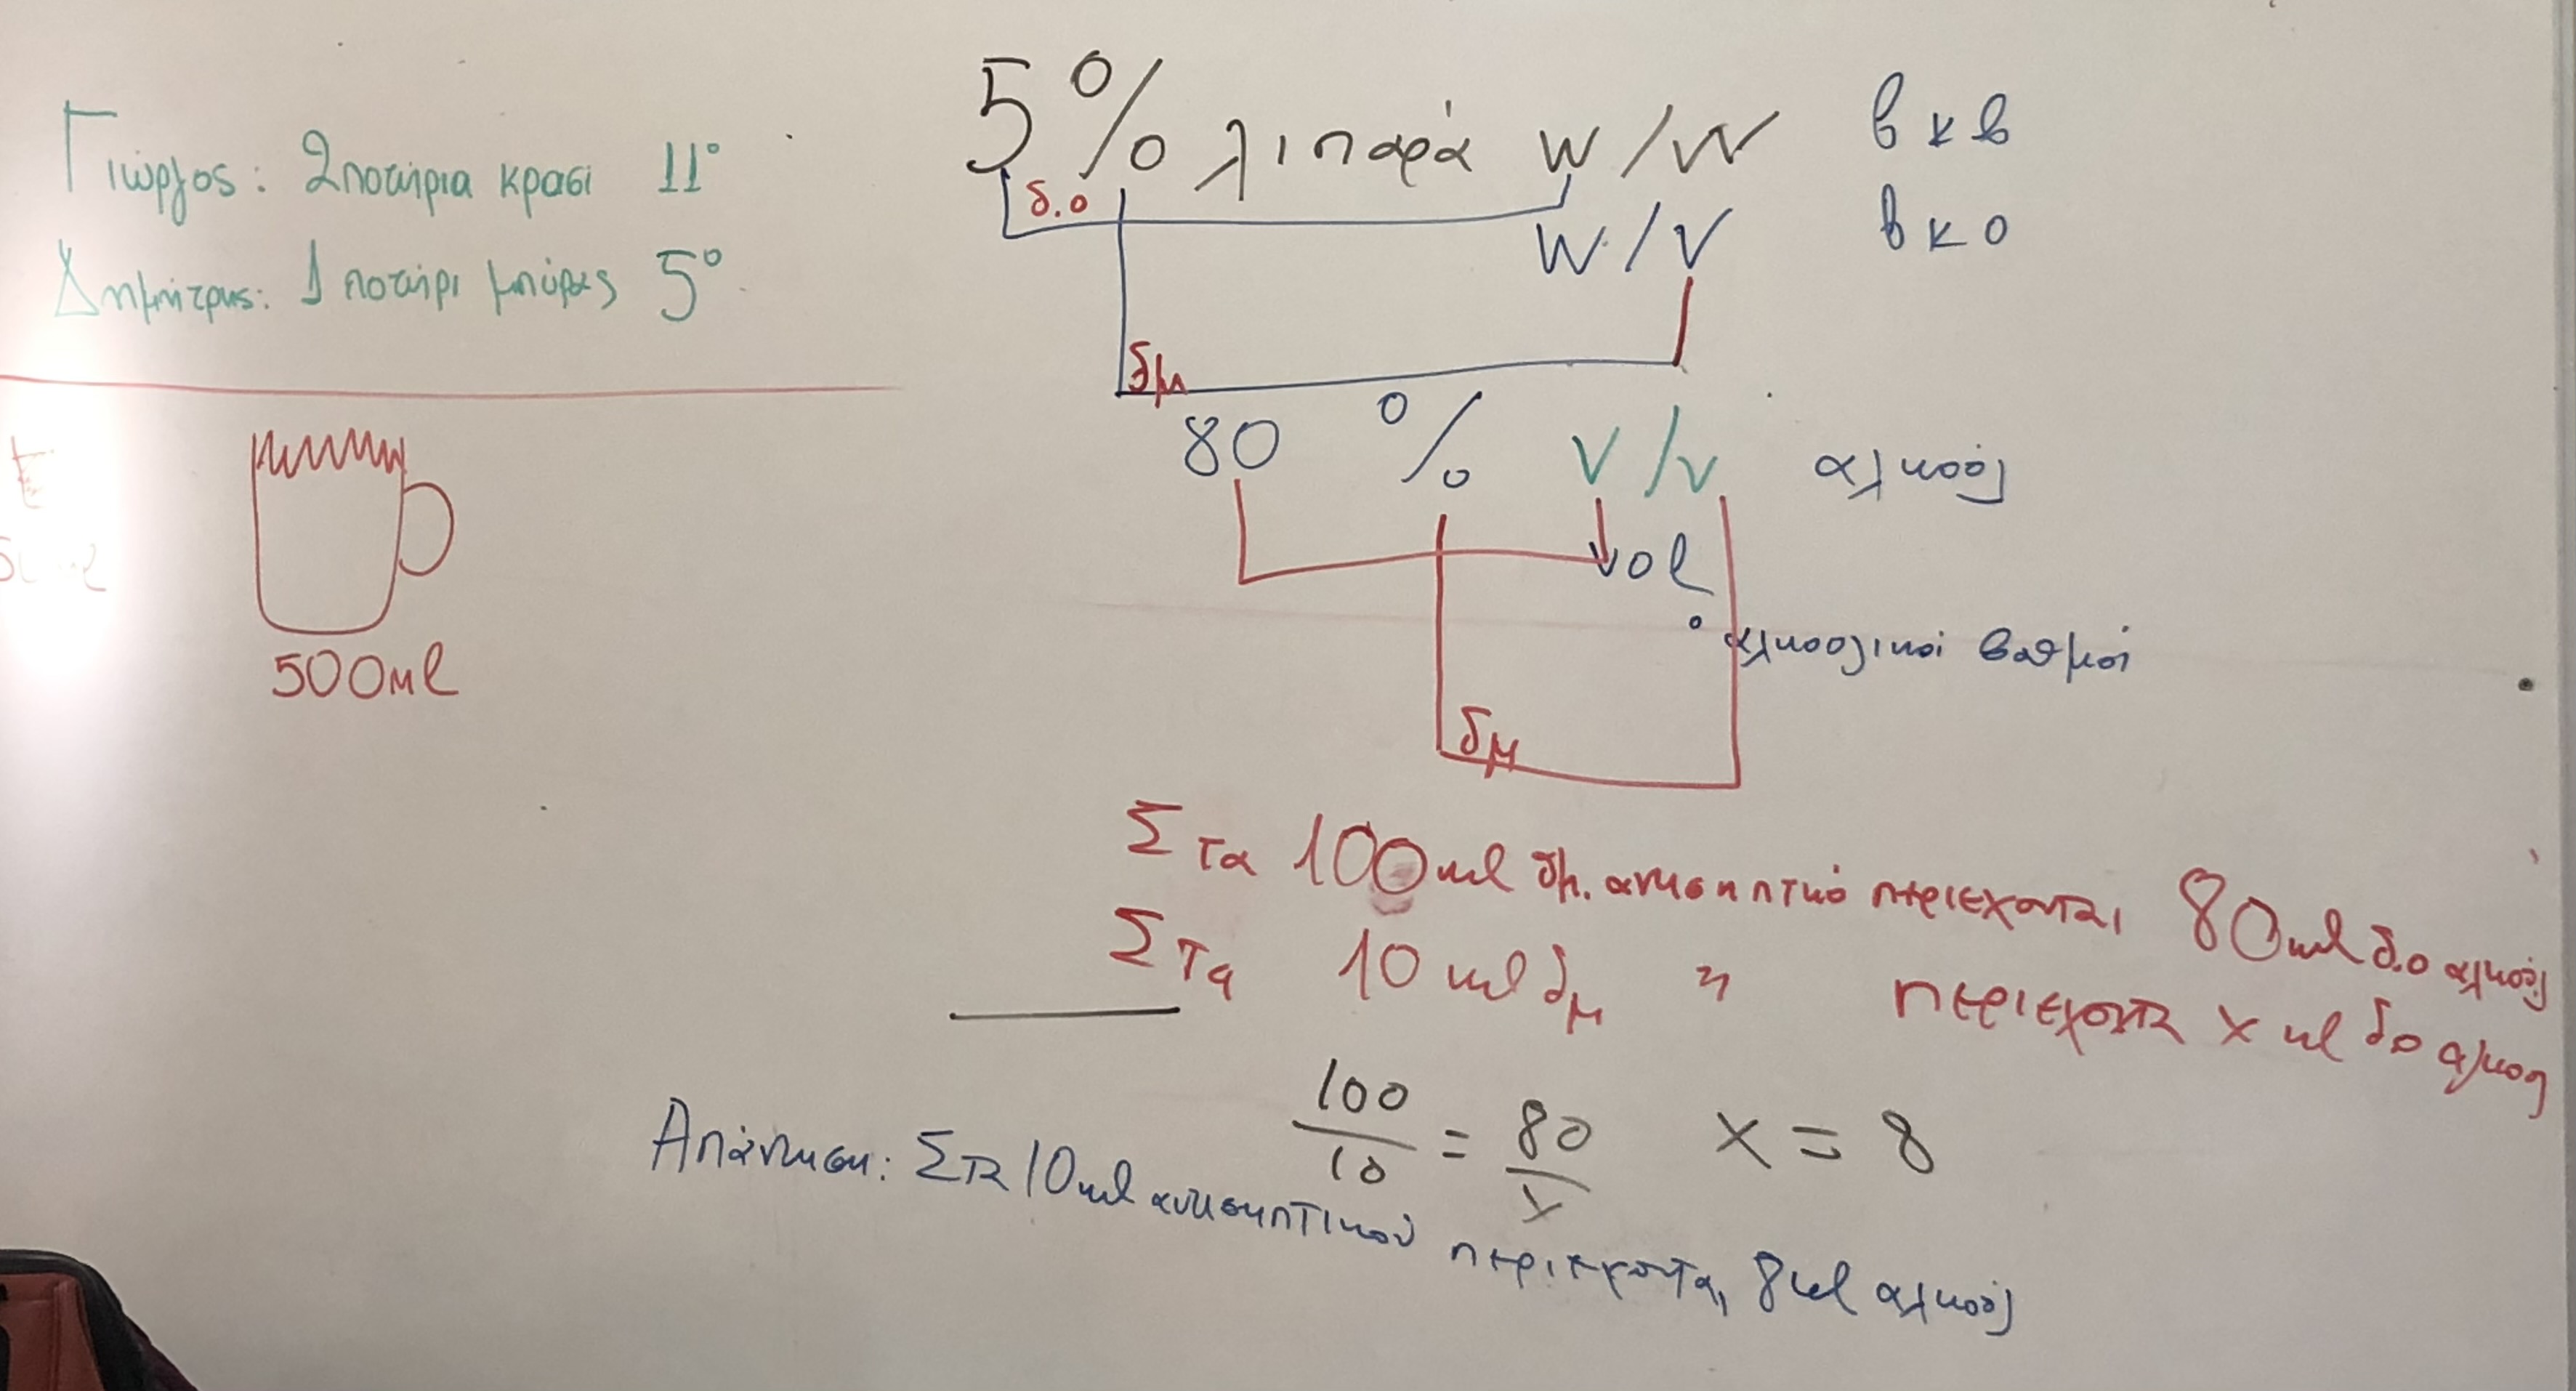 Γιώργος: 2 ποτήρια κρασί 11°
Δημήτρης: 1 ποτήρι μπύρας 5°
500ml
5 % λιπαρά w/w β κ β
δ.ο
w/v β κ ο
δμ
80 % v/v αλκοόλ
vol
° αλκοολικοί βαθμοί
δμ
Στα 100ml δμ. αντισηπτικό περιέχονται 80ml δ.ο αλκοόλ
Στα 10 ml δμ " περιέχονται x ml δο αλκοολ
100/10 = 80/x x = 8
Απάντηση: Στα 10ml αντισηπτικού περιέχονται 8ml αλκοόλ